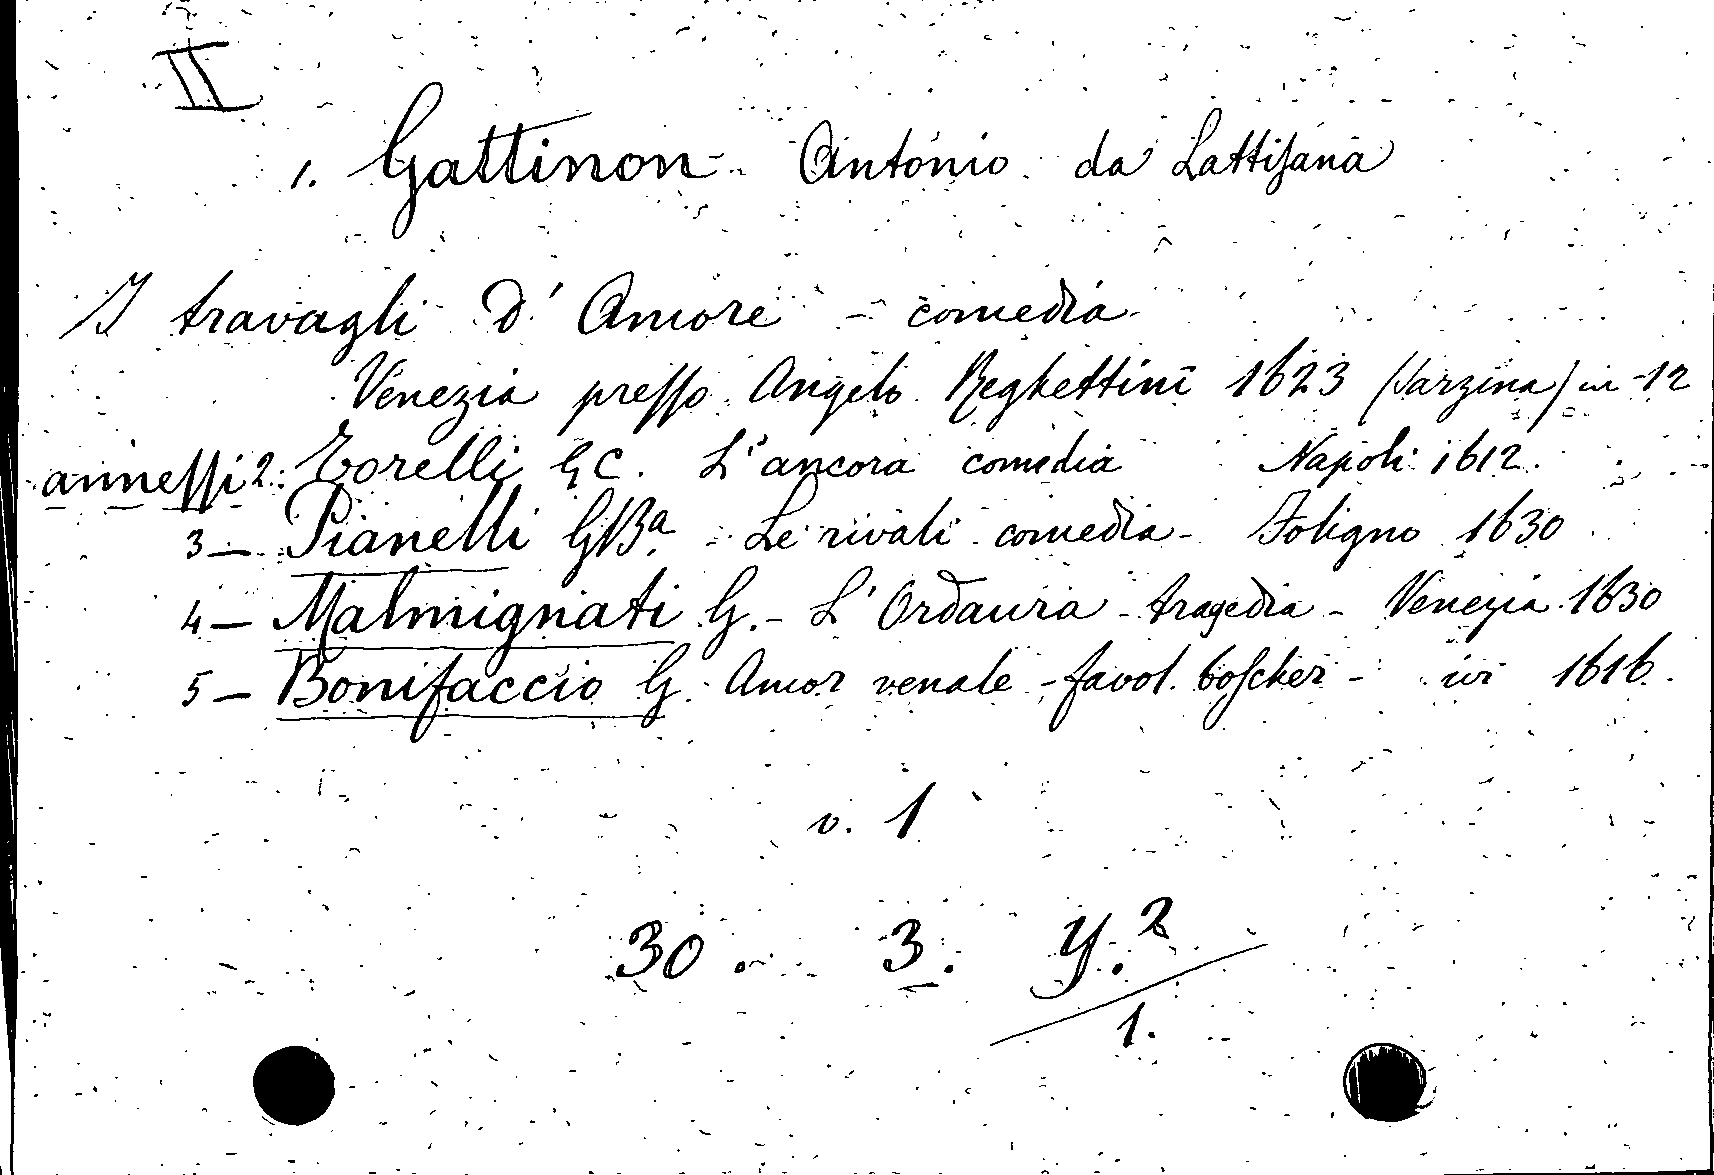 II
1. Gattinon Antonio da Lattisana
I travagli d'Amore - comedia
Venezia presso Angelo Reghettini 1623 (Sarzina) in-12
annessi 2. Torelli G C. L'ancora comedia Napoli 1612.
3 — Pianelli GBa. Le rivali comedia - Foligno 1630
4 — Malmignati G. - L'Ordaura - tragedia - Venezia 1630
5 — Bonifaccio G. Amor venale - favol. boscher - ivi 1616.
v. 1
30. 3. Y.2
1.